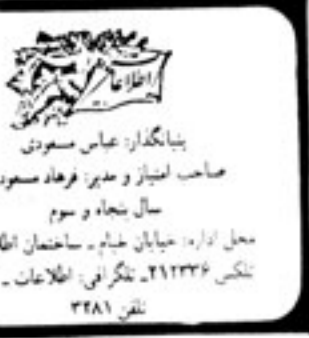 اطلاعات
بنیانگذار: عباس مسعودی
صاحب امتیاز و مدیر: فرهاد مسعود
سال پنجاه و سوم
محل اداره: خیابان خیام ـ ساختمان اطلا
تلکس ۲۱۲۳۳۶ـ تلگرافی: اطلاعات ـ
تلفن ۳۲۸۱